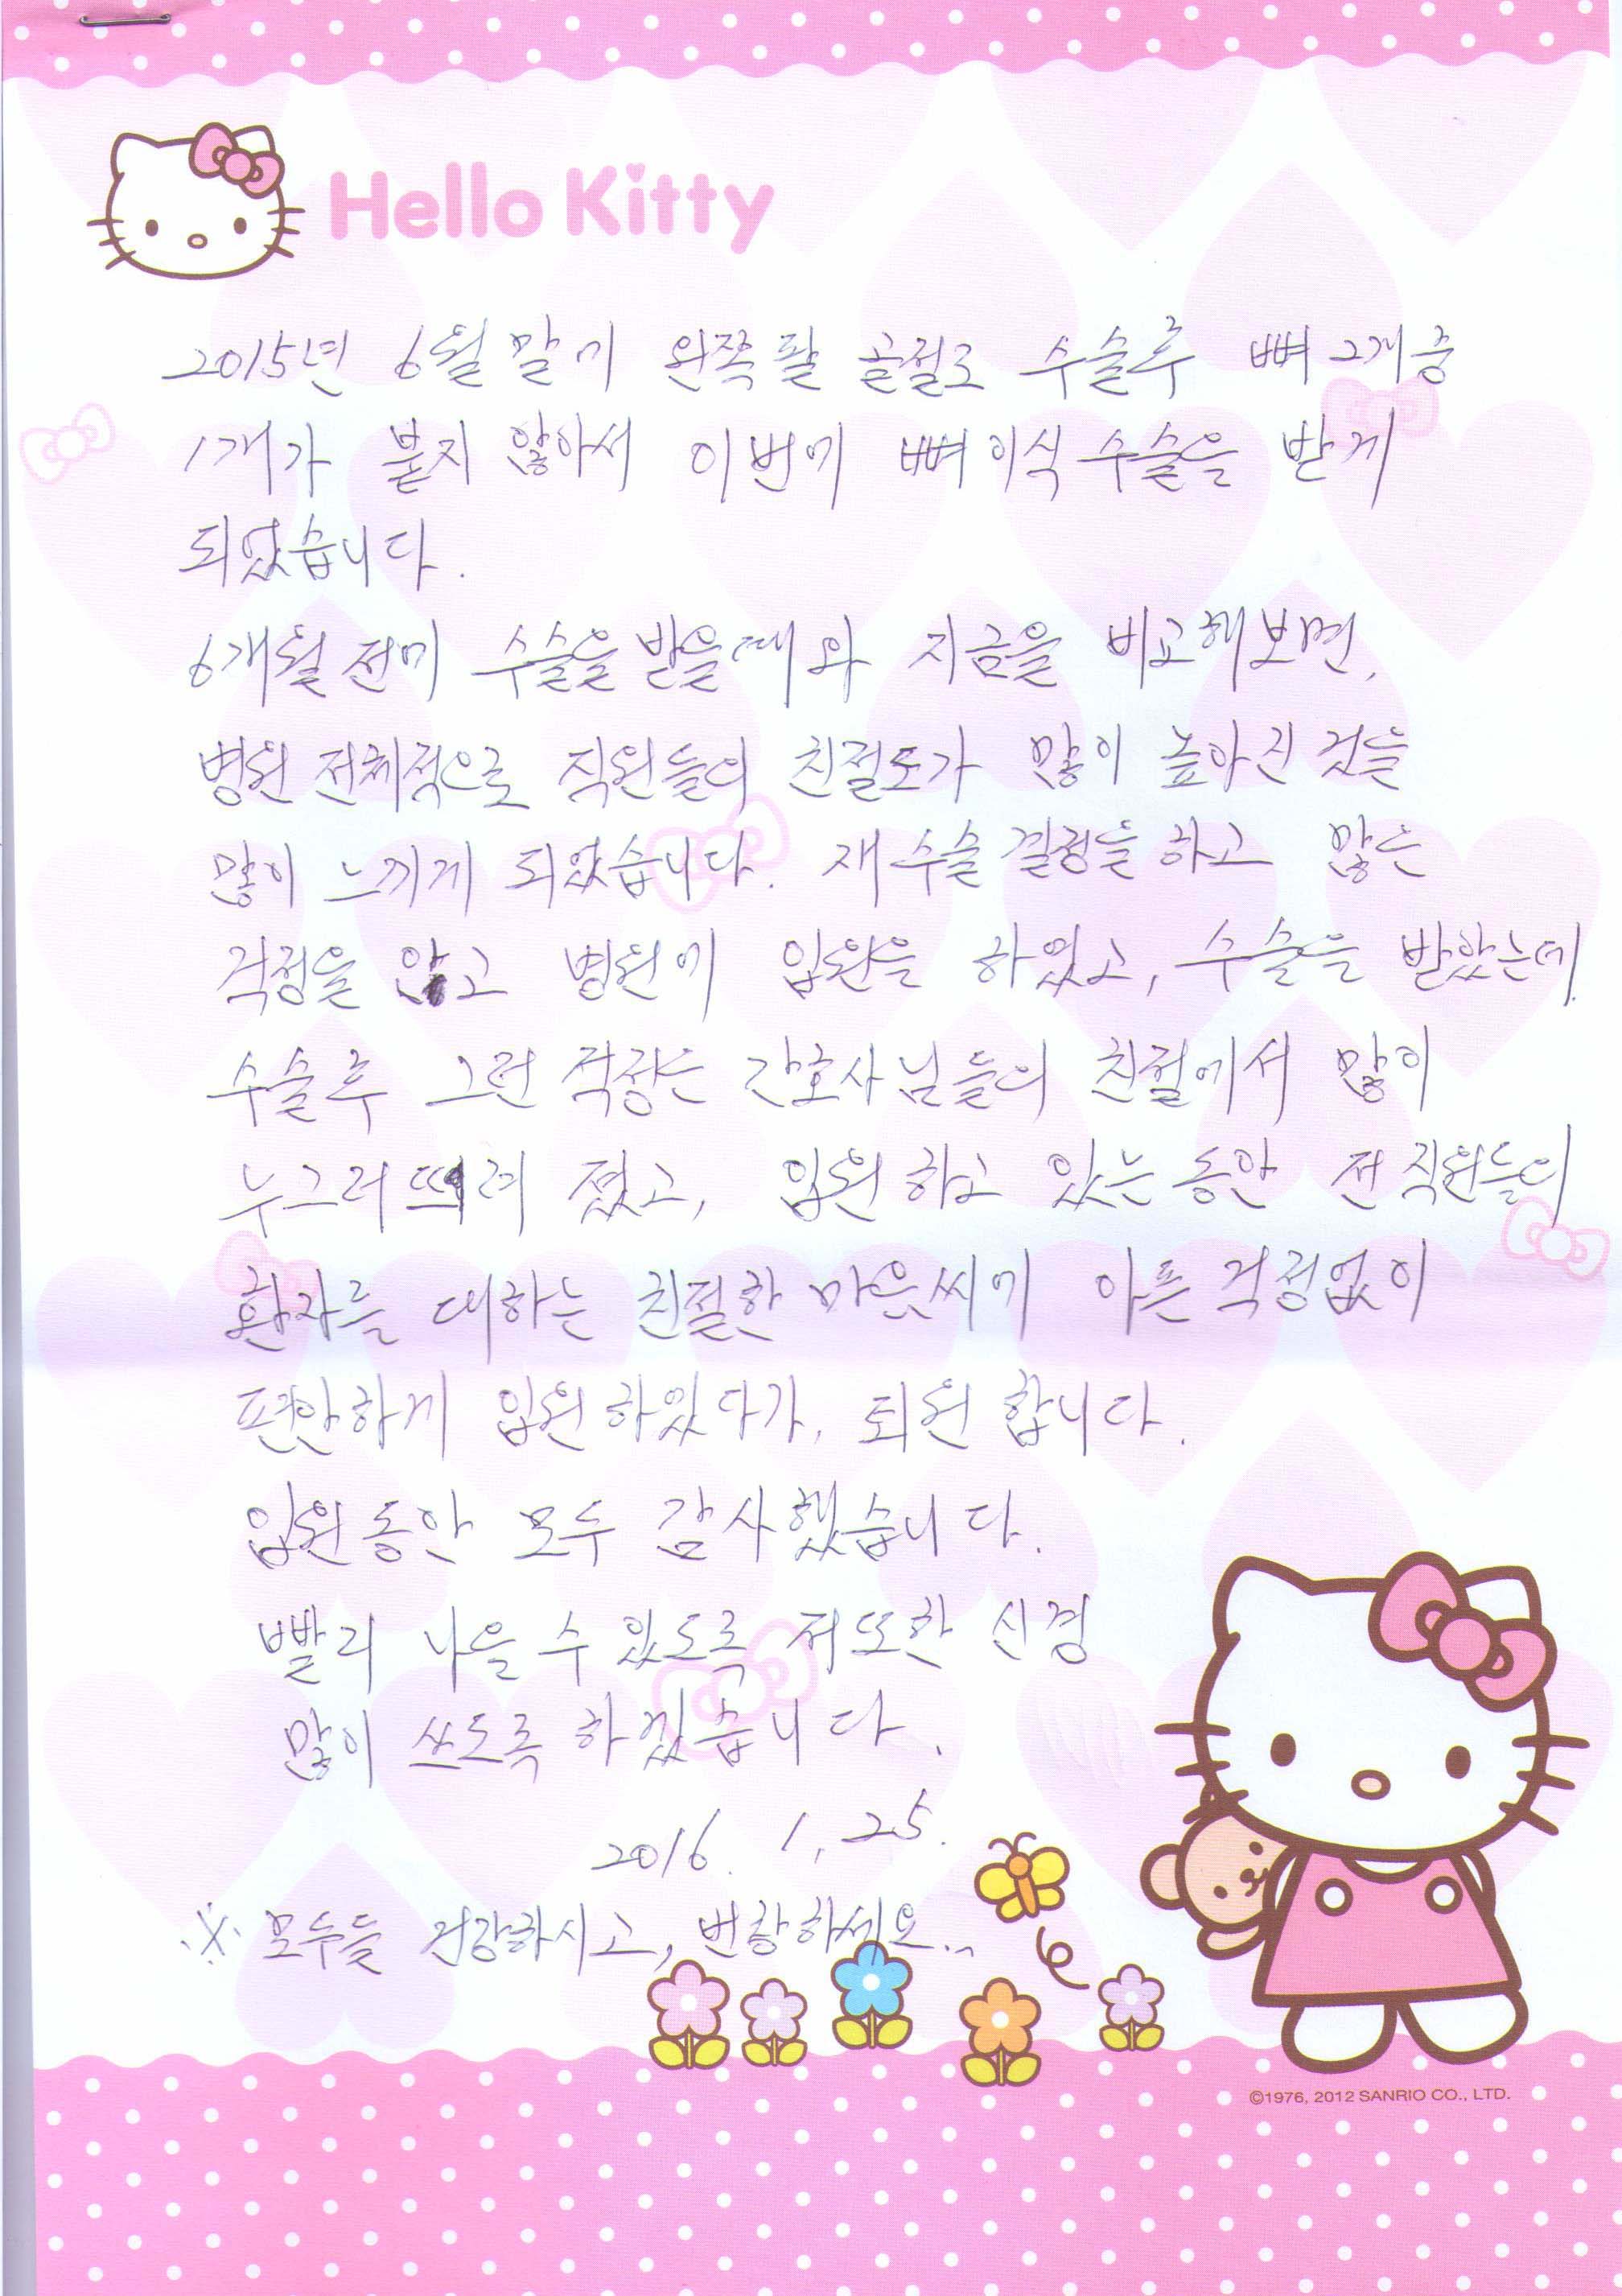 Hello Kitty
2015년 6월 말에 왼쪽 팔 골절로 수술후 뼈 2개중
1개가 붙지 않아서 이번에 뼈 이식 수술을 받게
되었습니다.
6개월 전에 수술을 받을때와 지금을 비교해보면,
병원 전체적으로 직원들의 친절도가 많이 높아진 것을
많이 느끼게 되었습니다. 재수술 결정을 하고 많은
걱정을 안고 병원에 입원을 하였고, 수술을 받았는데
수술후 그런 걱정은 간호사님들의 친절에서 많이
누그러 뜨려 졌고, 입원 하고 있는 동안 전 직원들의
환자를 대하는 친절한 마음씨에 아픈 걱정없이
편안하게 입원하였다가, 퇴원 합니다.
입원동안 모두 감사했습니다.
빨리 나을 수 있도록 저또한 신경
많이 쓰도록 하겠습니다.
2016. 1. 25.
※ 모두들 건강하시고, 번창하세요..
©1976, 2012 SANRIO CO., LTD.